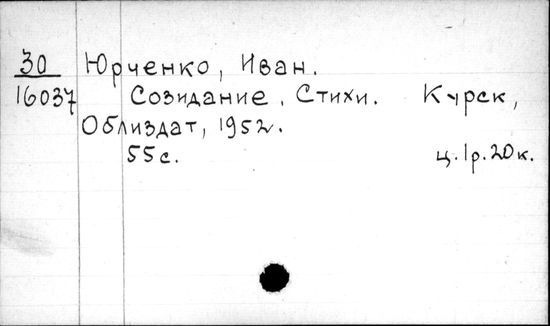 30 Юрченко, Иван.
16037 Созидание. Стихи. Курск,
Облиздат, 1952.
55с. ц. 1р. 20к.